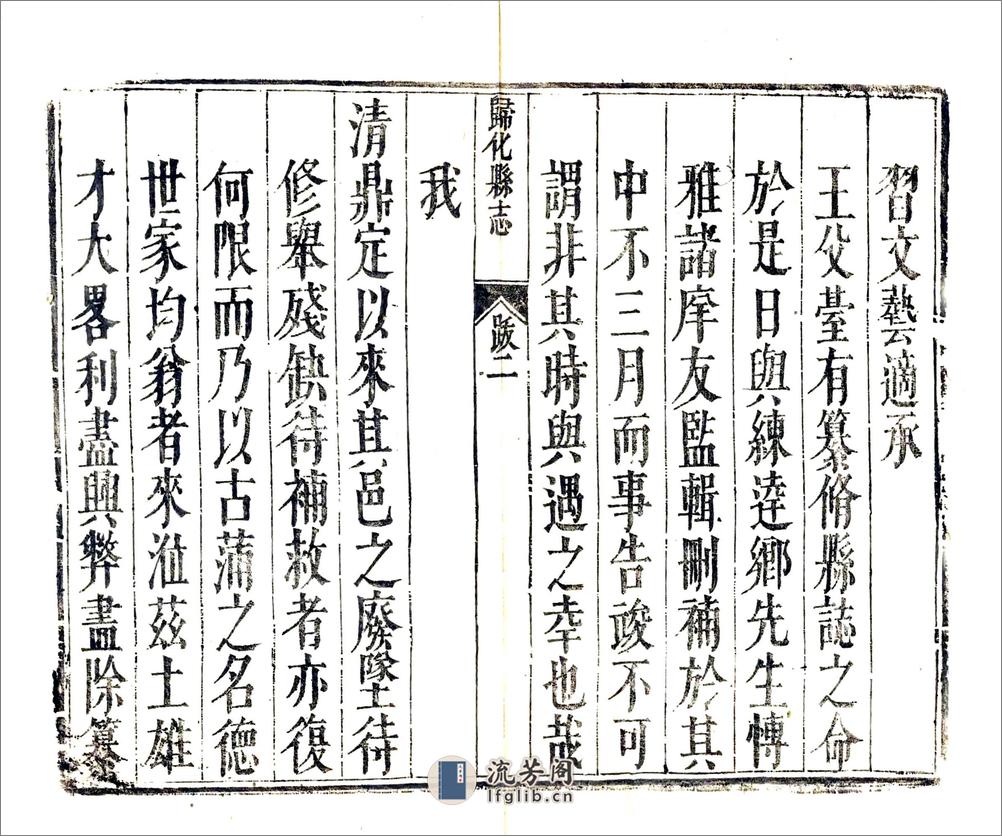 習文藝適承
王父臺有纂脩縣誌之命
於是日與練逹鄉先生慱
雅諸庠友監輯刪補於其
中不三月而事告竣不可
謂非其時與遇之幸也哉
歸化縣志
跋二
我
清鼎定以來其邑之廢墜待
修舉殘缺待補救者亦復
何限而乃以古蒲之名德
世家均翁者來涖茲土雄
才大畧利盡興弊盡除纂
流芳阁
lfglib.cn